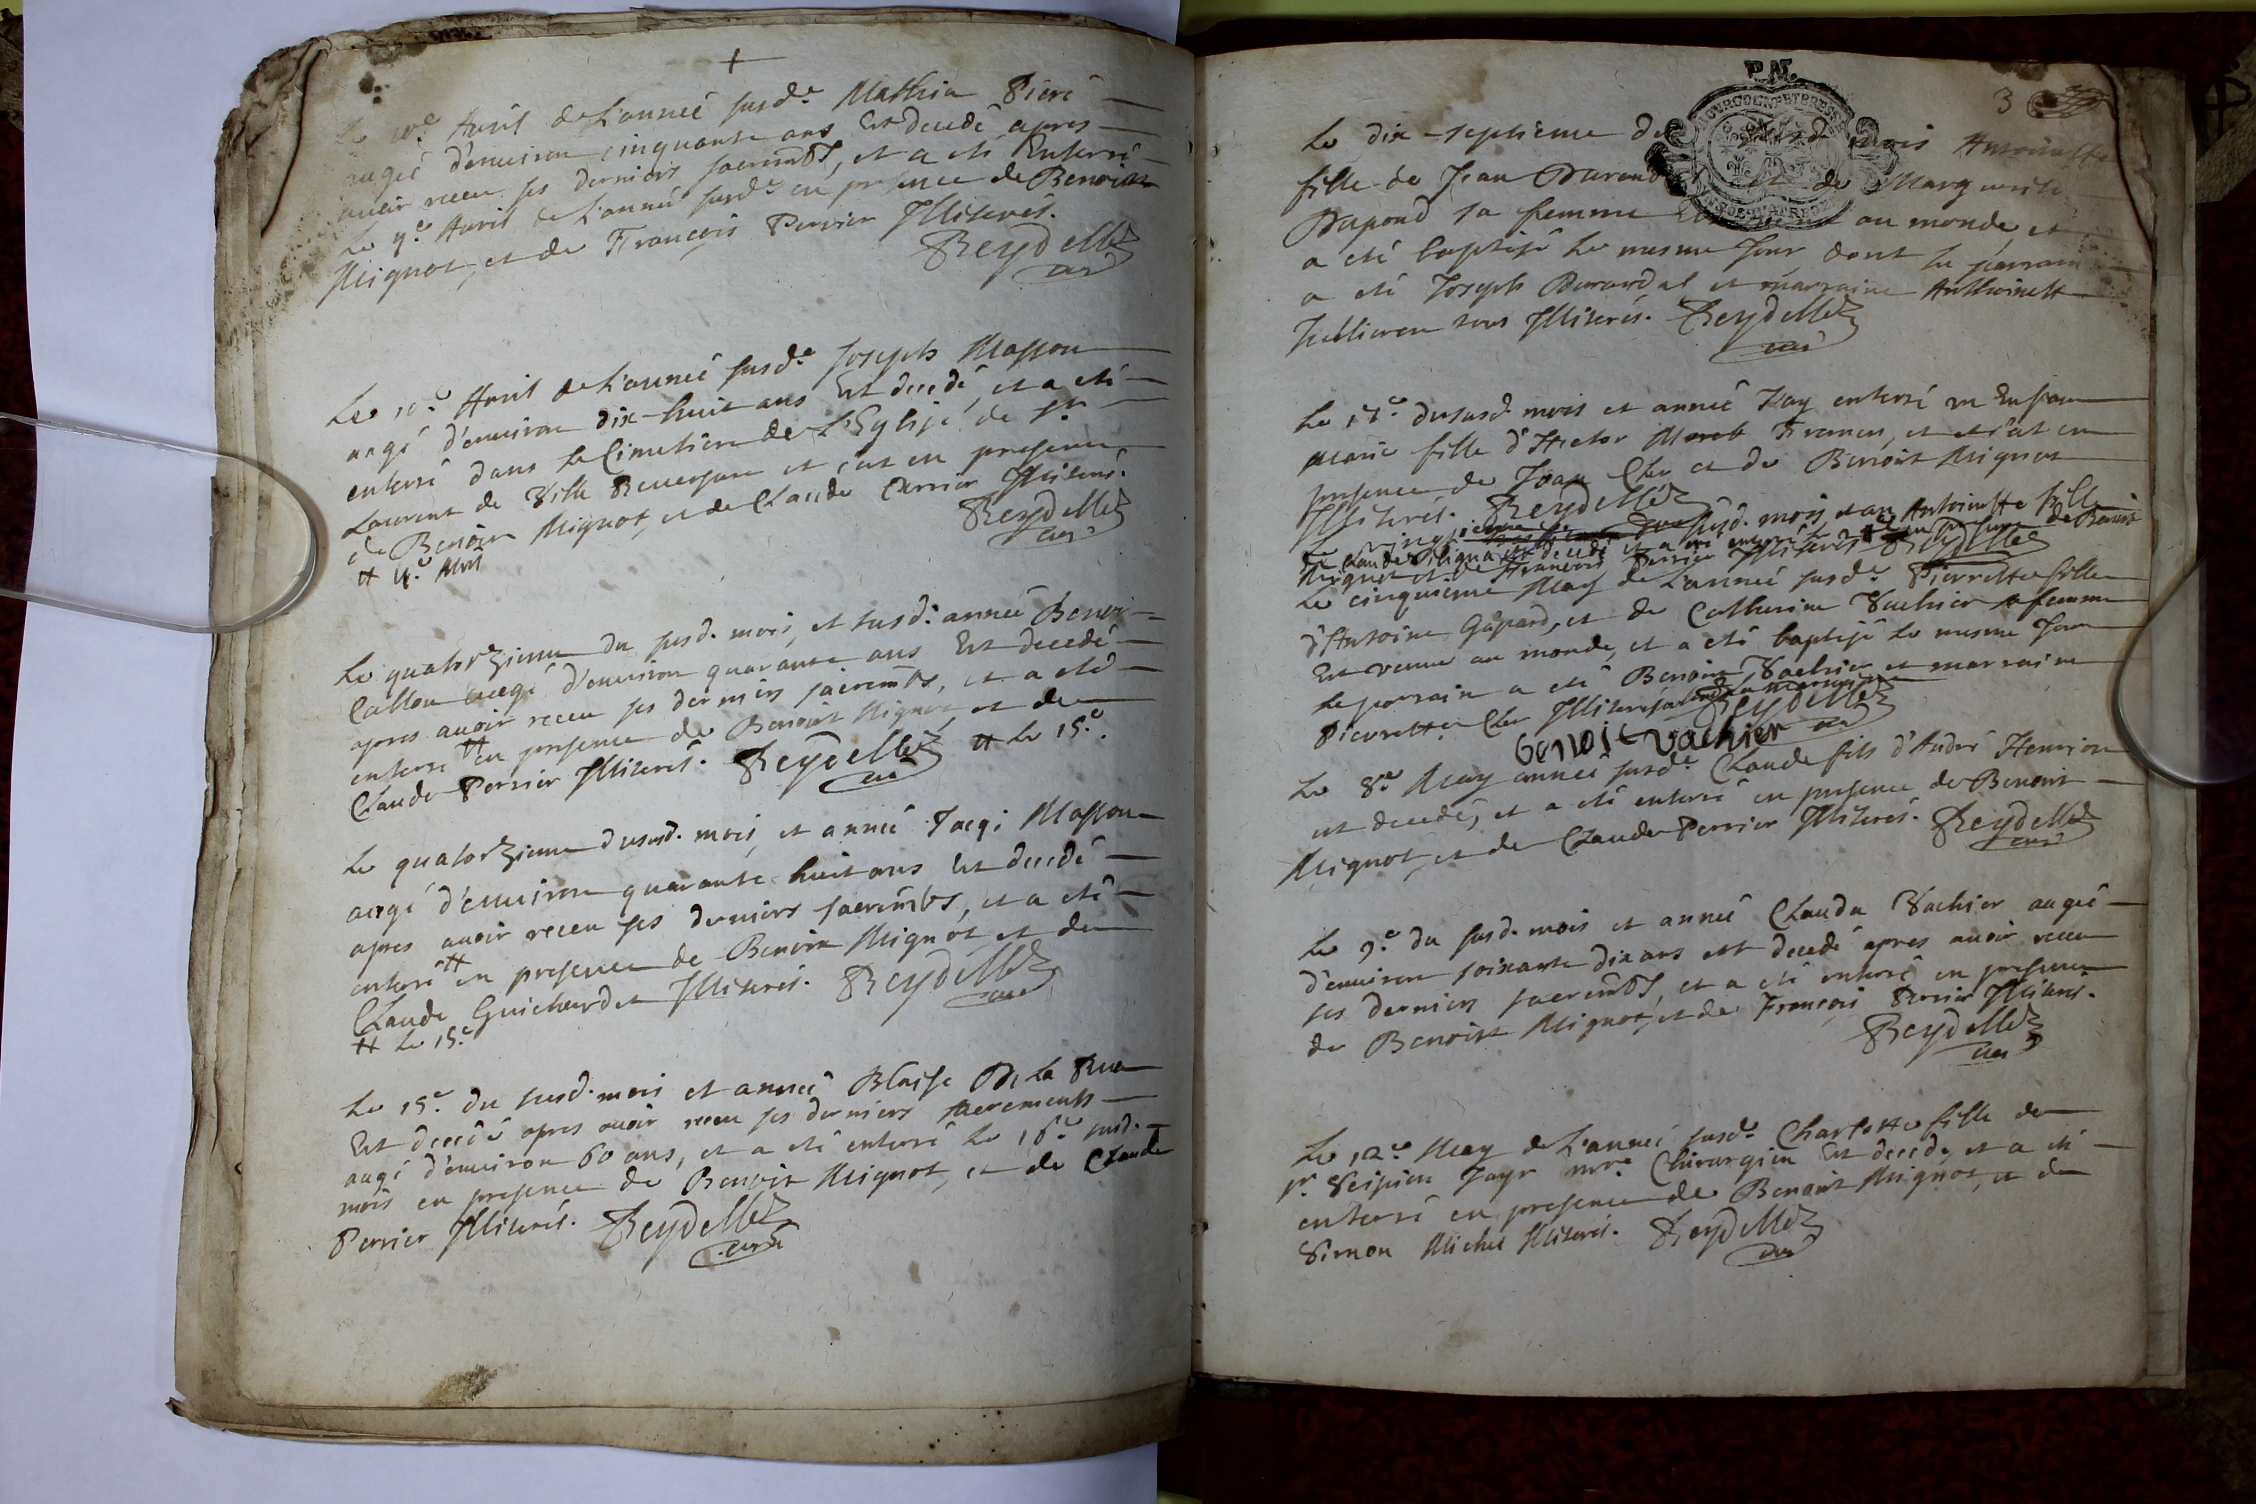 +
Le 10.e Auril de L'année susd.e Mathia Piere
augé d'enuiron cinquante ans Est decedé apres
auoir receu ses derniers sacremts, et a eté Enterré
Le 9.e Auril de L'année susd.e en presence de Benoist
Mignot, et de François Perrier Illiterés.
Reydellet
curé
Le 10.e Auril de L'année susd.e Joseph Masson
augé d'enuiron dix-huit ans Est decedé, et a eté
enterré dans Le Cimetiere de L'Eglise de St
Laurent de Ville Reuersure et c'est en presence
de Benoist Mignot, et de Claude Perrier Illiterés.
tt Auril
Reydellet
curé
Le quatorzieme du susd. mois, et susd. année Benoi
Callon augé d'enuiron quarante ans Est decedé
apres auoir receu ses derniers sacremts, et a eté
enterré tt en presence de Benoist Mignot et de
Claude Perrier Illiterés. Reydellet tt Le 15.e
curé
Le quatorzieme du susd. mois, et année Masson
augé d'enuiron quarante huit ans Est decedé
apres auoir receu ses derniers sacremts, et a eté
enterré tt en presence de Benoist Mignot et de
Claude Guichardet Illiterés. Reydellet
tt Le 15.e
curé
Le 15.e du susd. mois et année Blaise De La Rua
Est decedé apres auoir receu ses derniers sacrements
augé d'enuiron 60 ans, et a eté enterré Le 16.e susd.
mois en presence de Benoist Mignot, et de Claude
Perrier Illiterés. Reydellet
curé
P. M.
3
Le dix-septieme du mois Antoinette
fille de Jean Durand et de Marguerite
Dupond sa femme au monde, et
a eté baptisé Le mesme Jour dont Le parrain
a eté Joseph Durandal et marraine Anthoinett
tous Illiterés. Reydellet
curé
Le 17.e du susd. mois et année Jay enterré un Enfan
Marie fille d'Hector Franem, et c'est en
presence de Joan Cler et de Benoist Mignot
Illiterés. Reydellet
Le susd. mois et an Antoinette fille
de Claude est decedé et a eté enterré de Benoist
Mignot et de François Perrier Illiterés Reydellet
Le cinquieme May de L'année susd.e Pierrette fille
d'Antoine Gapard, et de Catherine Vachier sa femme
Est venue au monde, et a eté baptisé Le mesme Jour
Le parrain a eté Benoist Vachier et marraine
Pierrette Cler Illiterés Reydellet
benoist vachier
curé
Le 8.e May année susd.e Claude fils d'André Henrion
est decedé, et a eté enterré en presence de Benoist
Mignot, et de Claude Perrier Illiterés. Reydellet
curé
Le 9.e du susd. mois et année Claude Vachier augé
d'enuiron soixante dix ans est decedé apres auoir receu
ses derniers sacremts, et a eté enterré en presence
de Benoist Mignot, et de François Perrier Illiterés.
Reydellet
curé
Le 12.e May de L'année susd.e Charlotte fille de
Sr. Scipion Jayr mre Chirurgien Est decedé, et a eté
enterré en presence de Benoist Mignot, et de
Simon Michel Illiterés. Reydellet
curé